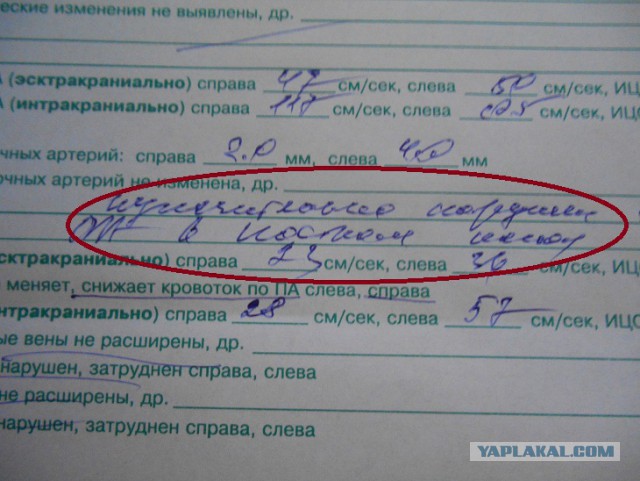 еские изменения не выявлены, др.
А (эсктракраниально) справа 47 см/сек, слева 50 см/сек, ИЦС
А (интракраниально) справа 117 см/сек, слева см/сек, ИЦС
очных артерий: справа 3.0 мм, слева 4.0 мм
очных артерий не изменена, др.
незначительно нарушен
в костном
сктракраниально) справа 23 см/сек, слева 36 см/сек, ИЦС
меняет, снижает кровоток по ПА слева, справа
нтракраниально) справа 28 см/сек, слева 57 см/сек, ИЦС
ые вены не расширены, др.
нарушен, затруднен справа, слева
не расширены, др.
нарушен, затруднен справа, слева
YAPLAKAL.COM